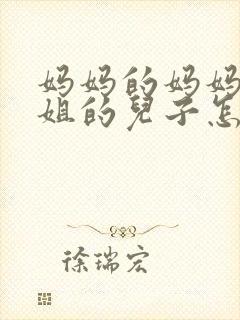 妈妈的妈妈
姐的兒子怎
徐瑞宏